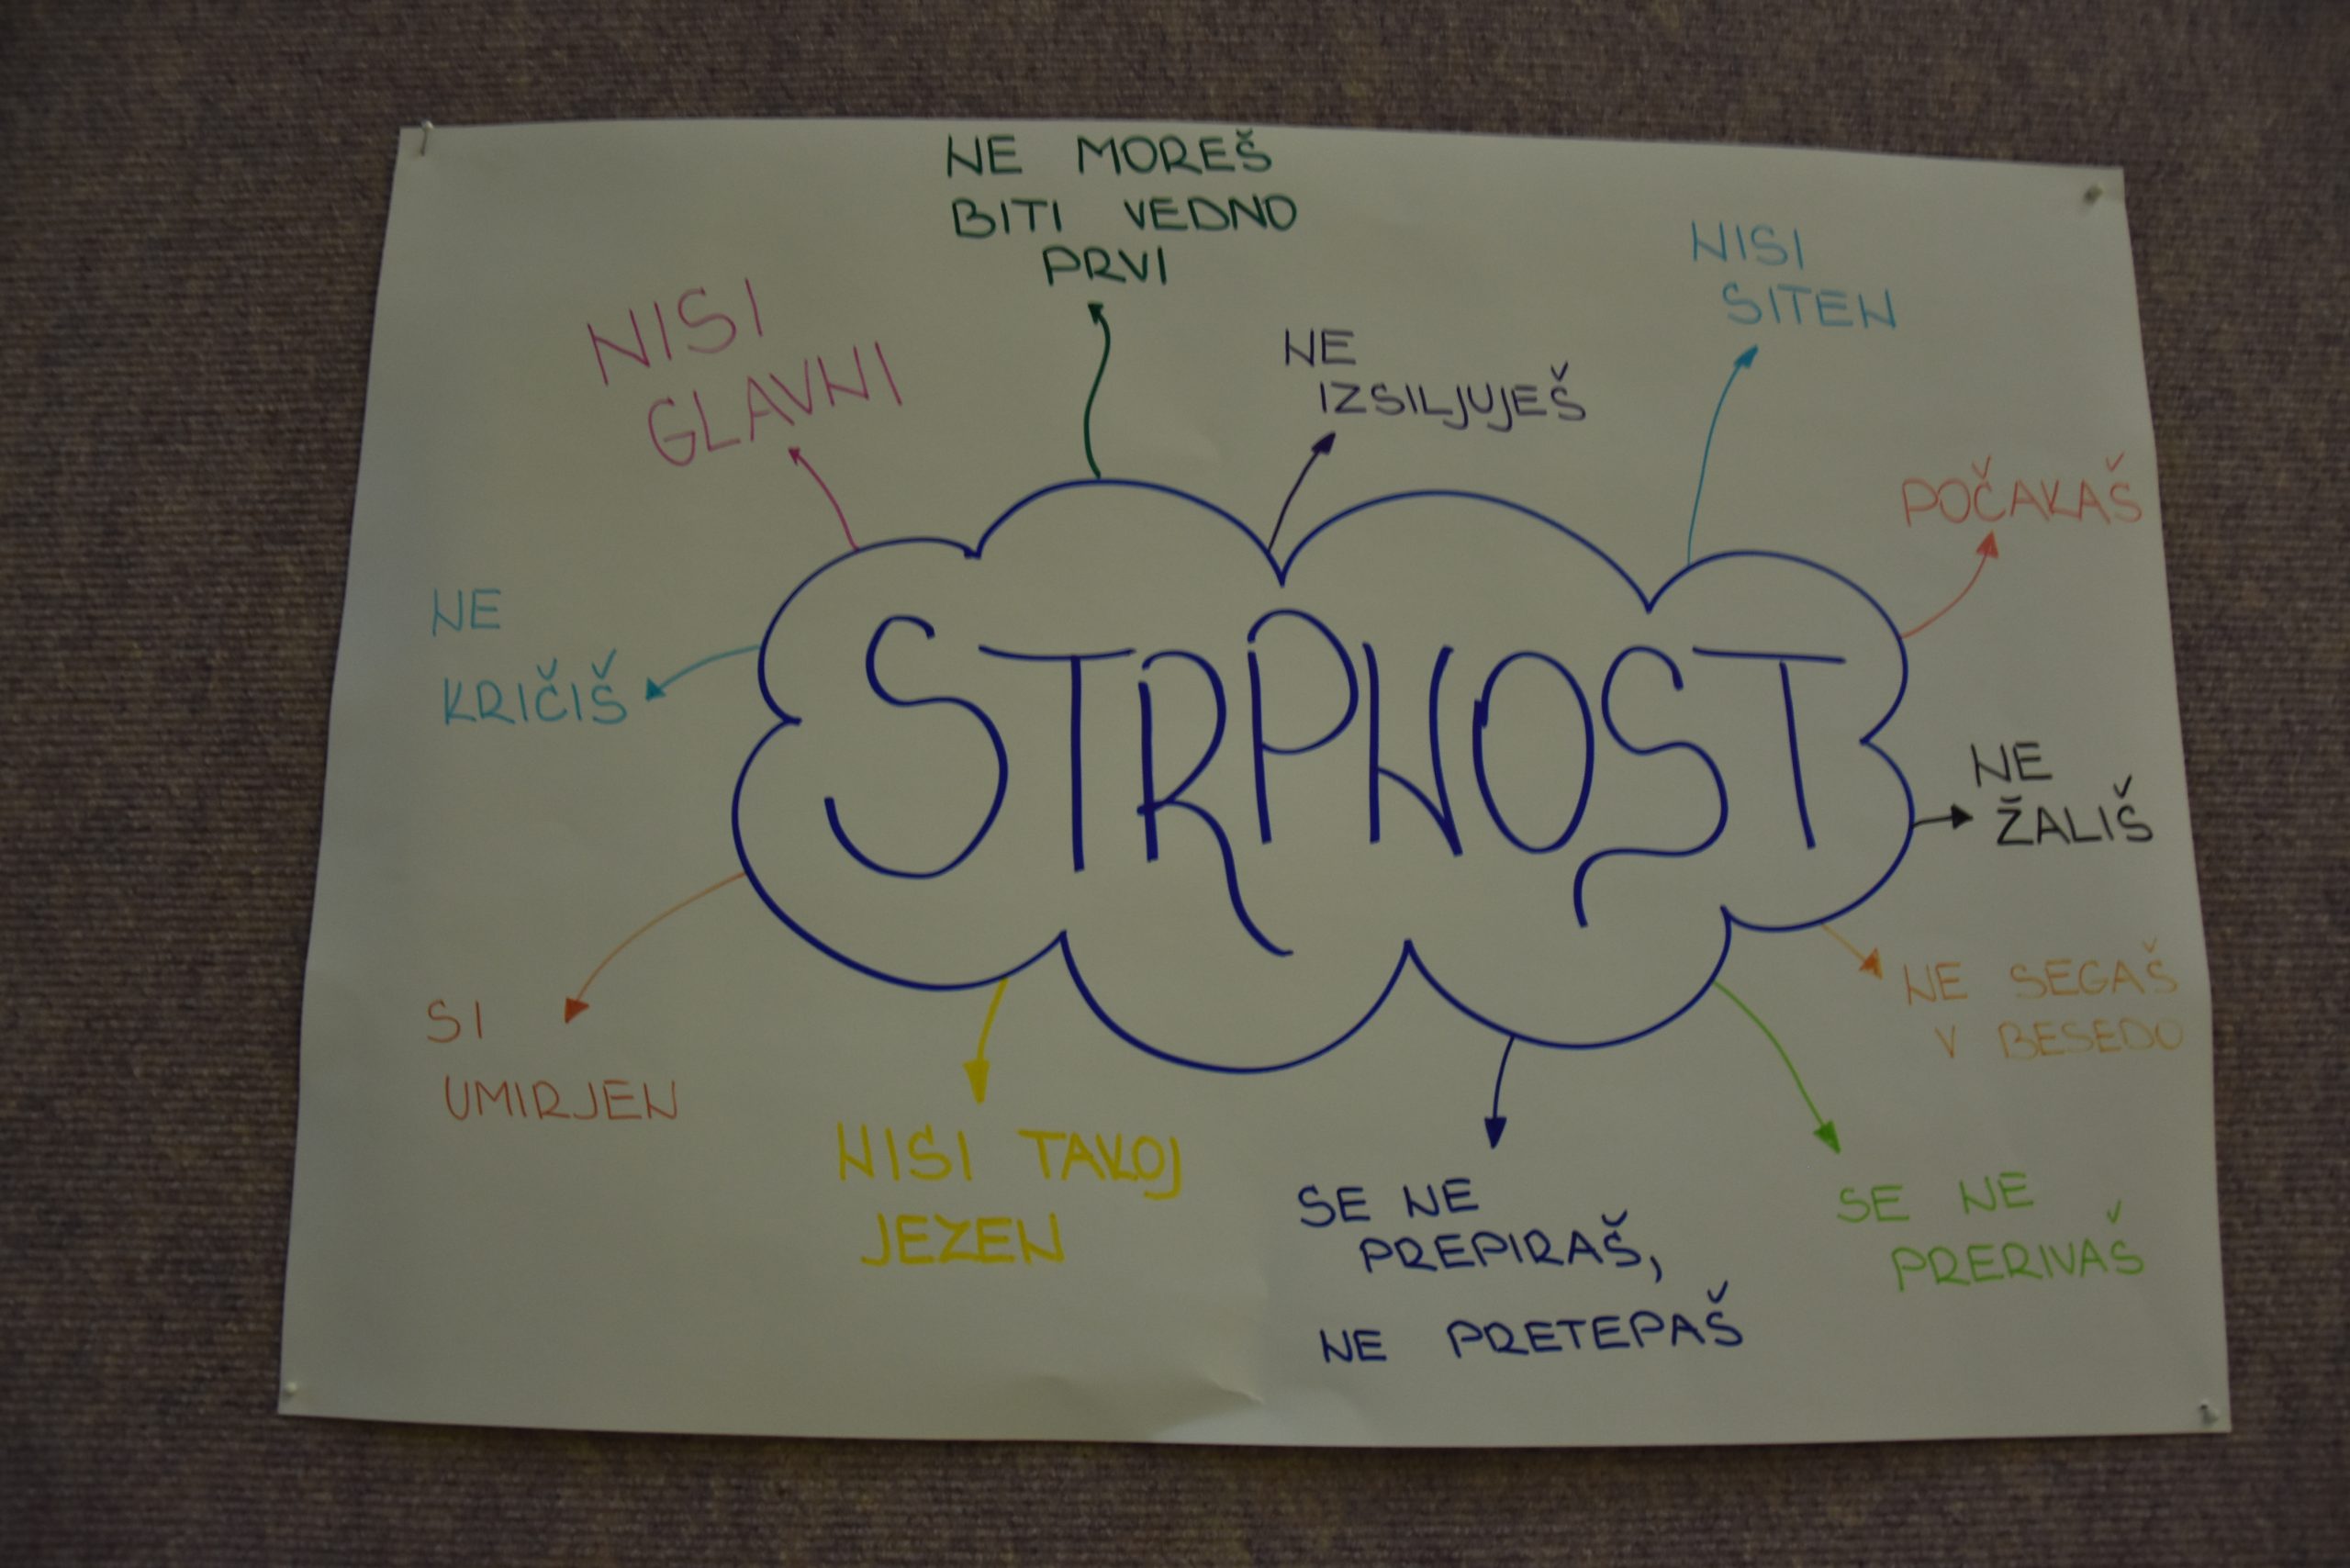 NE MOREŠ
BITI VEDNO
PRVI
NISI
GLAVNI
NE
IZSILJUJEŠ
NISI
SITEN
POČAKAŠ
NE
KRIČIŠ
STRPNOST
NE
ŽALIŠ
SI
UMIRJEN
NISI TAKOJ
JEZEN
SE NE
PREPIRAŠ,
NE PRETEPAŠ
SE NE
PRERIVAŠ
NE SEGAŠ
V BESEDO